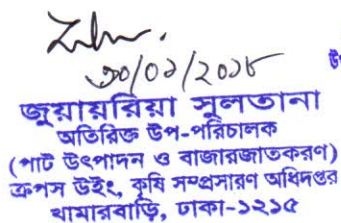 ৩০/০১/২০১৮
জুয়ায়রিয়া সুলতানা
অতিরিক্ত উপ-পরিচালক
(পাট উৎপাদন ও বাজারজাতকরণ)
ক্রপস উইং, কৃষি সম্প্রসারণ অধিদপ্তর
খামারবাড়ি, ঢাকা-১২১৫